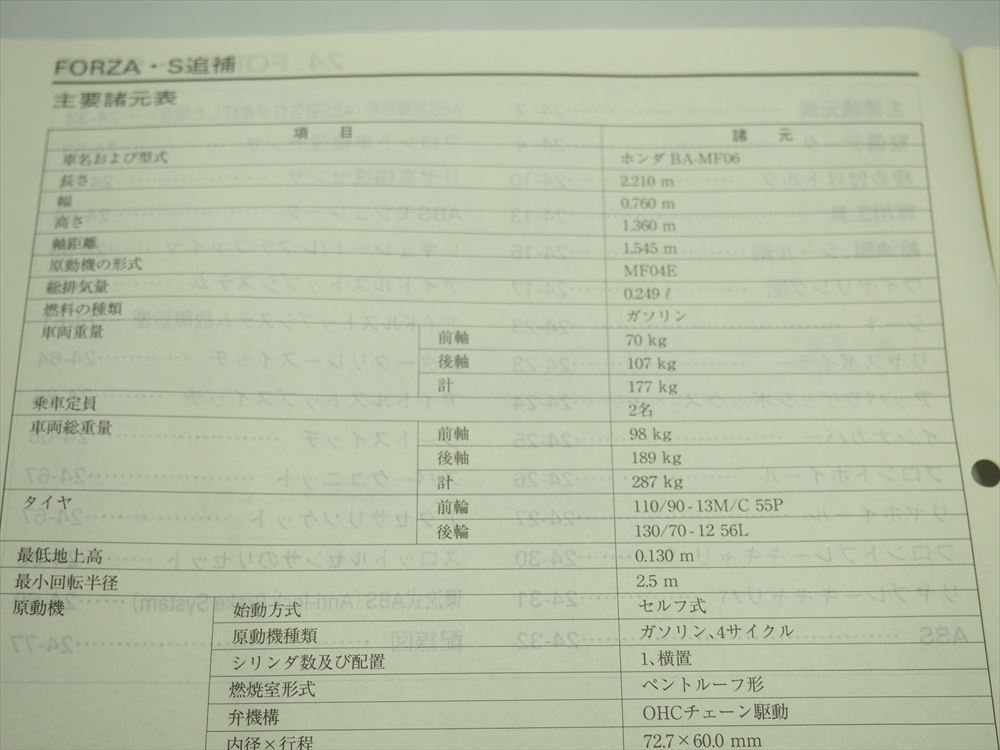 FORZA・S追補
主要諸元表
項 目 諸 元
車名および型式 ホンダ BA-MF06
長さ 2.210 m
幅 0.760 m
高さ 1.360 m
軸距離 1.545 m
原動機の形式 MF04E
総排気量 0.249 ℓ
燃料の種類 ガソリン
車両重量 前軸 70 kg
後軸 107 kg
計 177 kg
乗車定員 2名
車両総重量 前軸 98 kg
後軸 189 kg
計 287 kg
タイヤ 前輪 110/90 - 13M/C 55P
後輪 130/70 - 12 56L
最低地上高 0.130 m
最小回転半径 2.5 m
原動機 始動方式 セルフ式
原動機種類 ガソリン、4サイクル
シリンダ数及び配置 1、横置
燃焼室形式 ペントルーフ形
弁機構 OHCチェーン駆動
内径×行程 72.7×60.0 mm